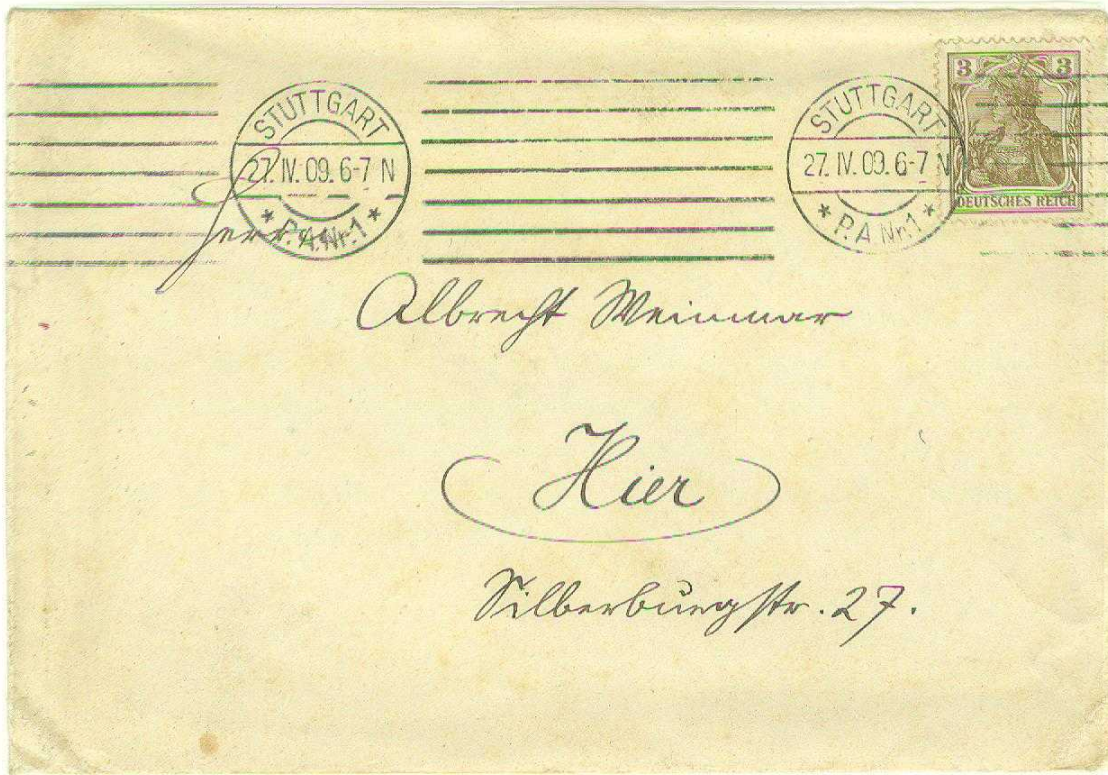 STUTTGART
27. IV. 09. 6-7 N
* P.A.Nr.1 *
STUTTGART
27. IV. 09. 6-7 N
* P.A.Nr.1 *
3 3
DEUTSCHES REICH
Herrn
Albrecht Weinmar
Hier
Silberburgstr. 27.